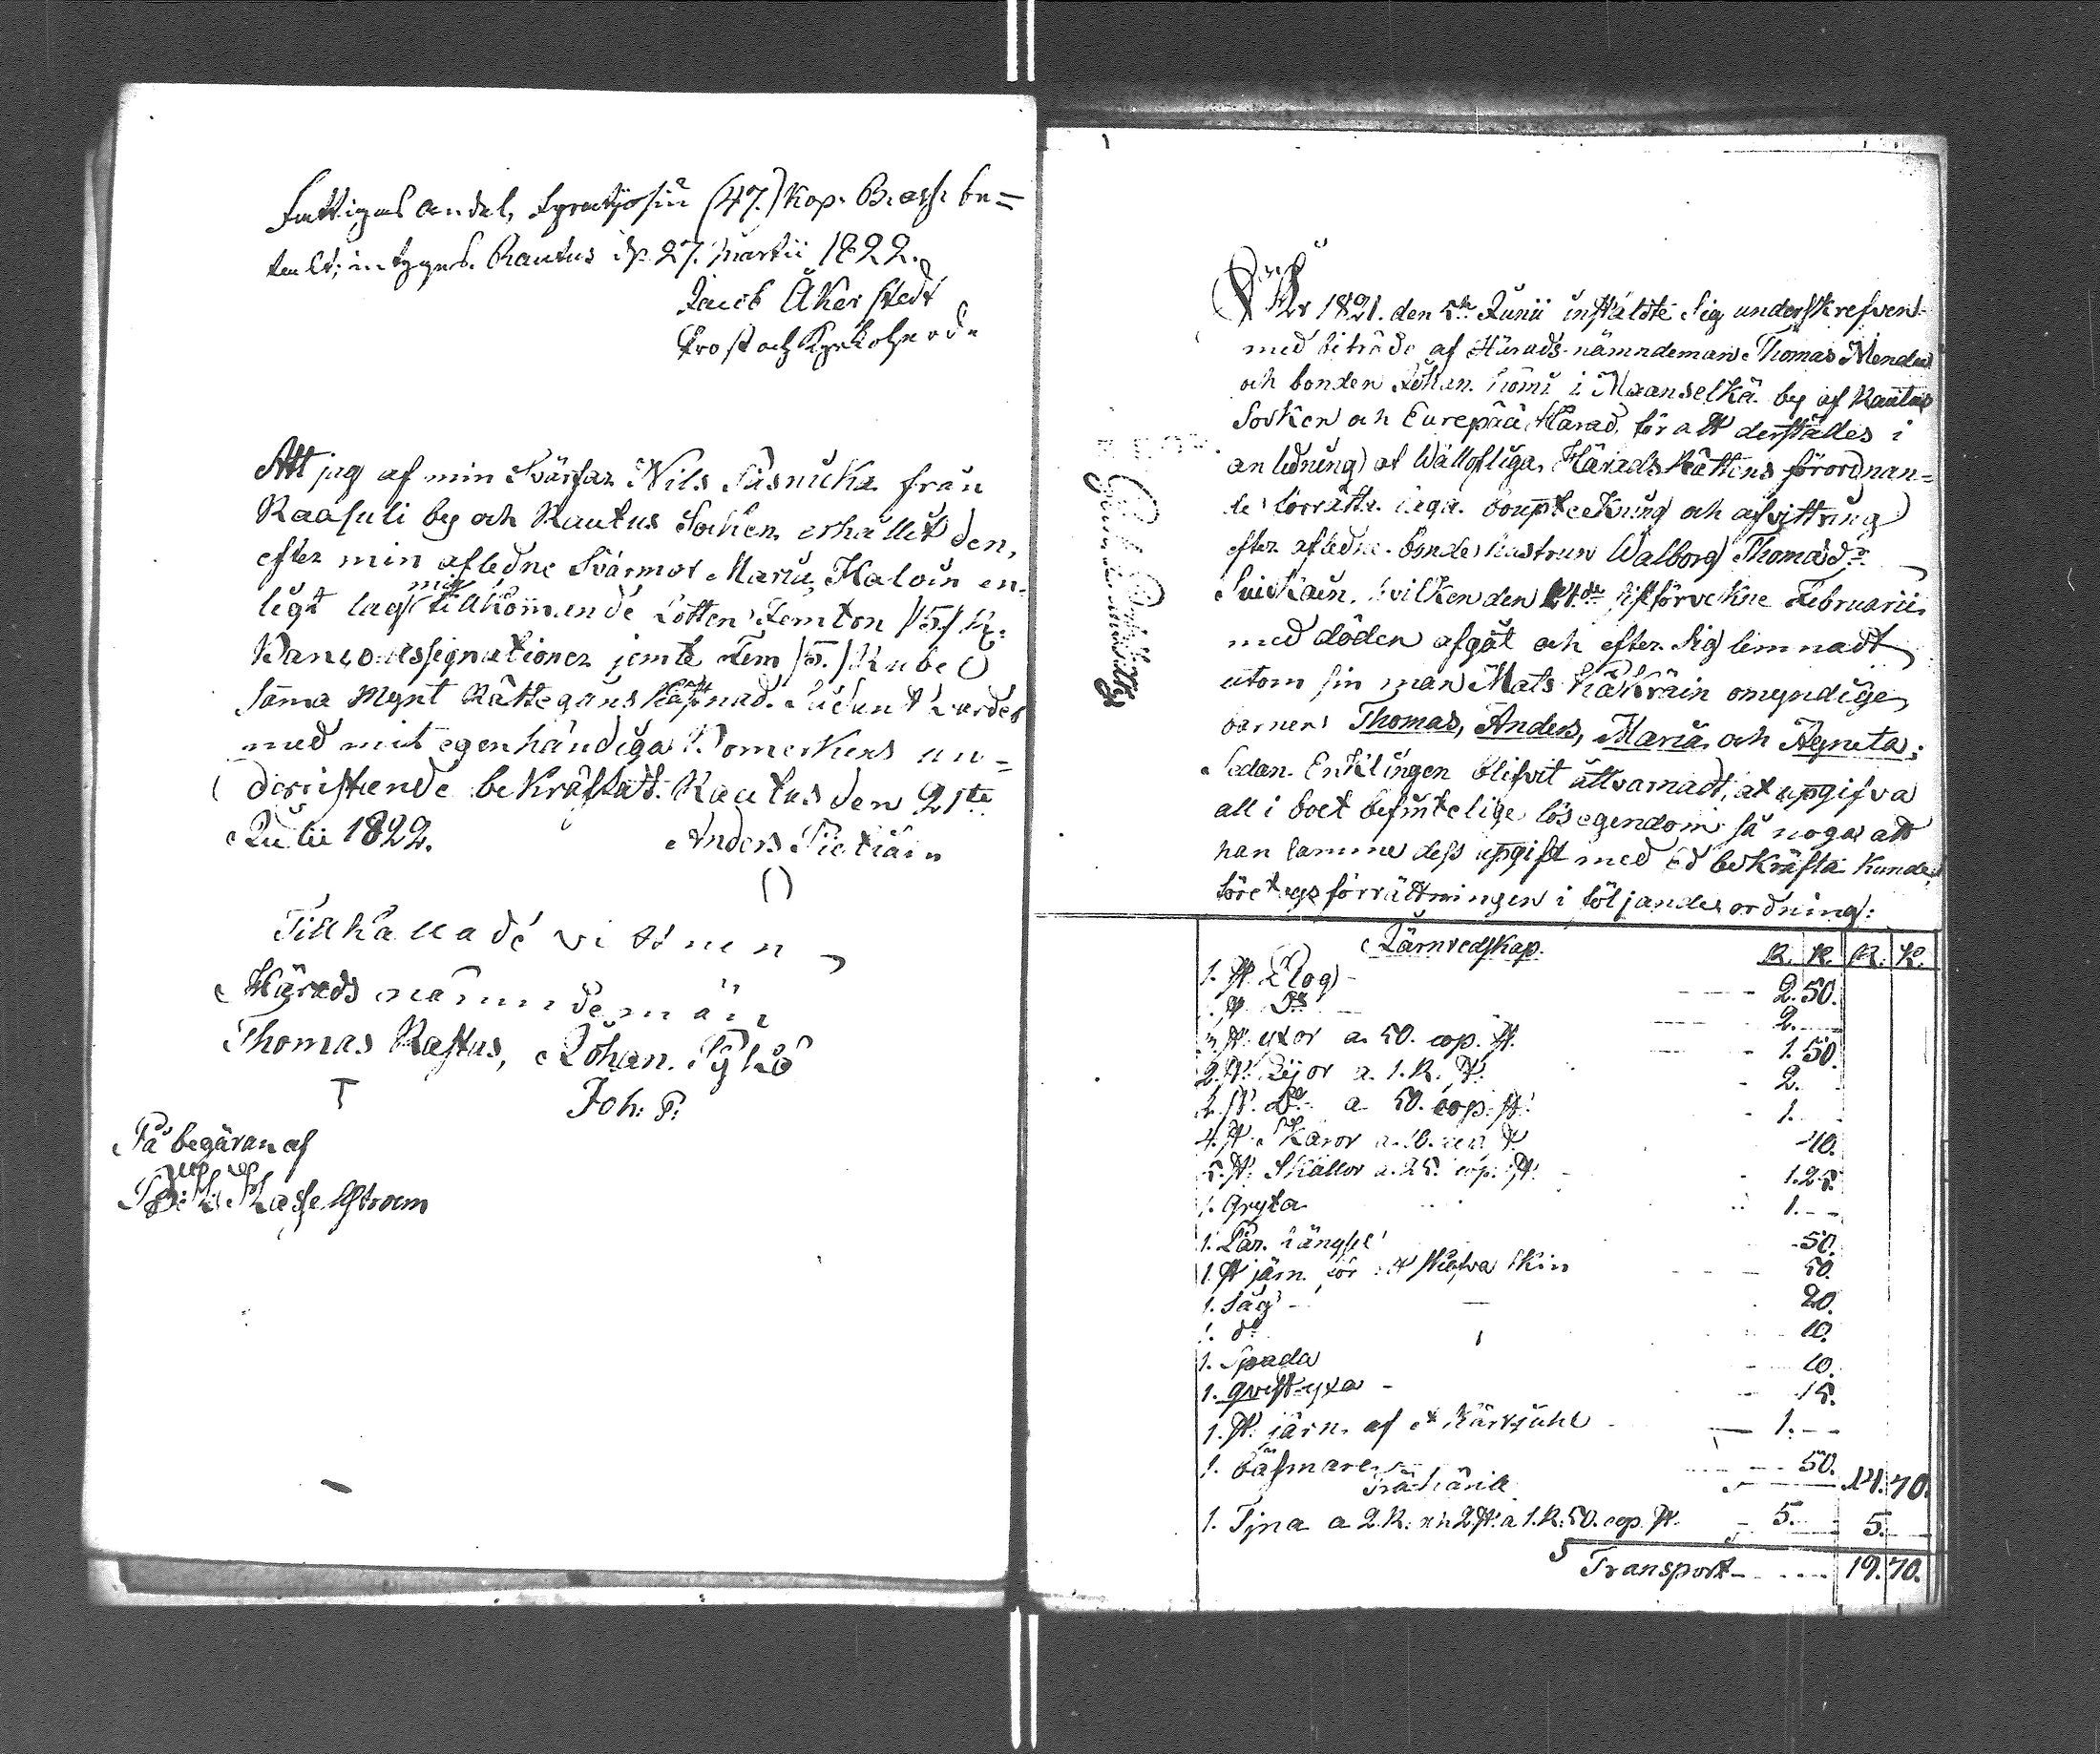 Fattigas andel, Fyratijosju (47.) Kop. B. ass. be=
talt; intygas. Rautus d. 27. Martii 1822.
Jacob Åkerstedt
Prost och Kyrkoherde
Att jag af min Svärfar Nils Säsnicka från
Raasuli by och Rautus Socken erhållit den,
efter min afledne Svärmor Maria Haloin en-
ligt lag mig tillkommende Lotten Femton /15/ R:
Banco assignationer jemte Fem /5./ Rubel
Sama Mynt Rättegåns kåstnad. Sådant varder
med mit egenhändiga Bomerkens un=
dersättende bekräftat. Rautus den 21ste
Julii 1822. Anders Pietiäin
Tillkallade vittnen
Härads nämndemän
Thomas Rastus, Johan. Pykö
T Joh: P:
På begäran af
Hasselstroem
År 1821. den 5te Junii instälde Sig underskrefvent
med biträde af Härads-nämndeman Thomas Mendu
och bonden Johan Nomi i Maanselkä by af Rautus
Socken och Eurepää Härad, för att derstädes i
anledning af Wällofliga Härads Rättens förordnan=
de förrätta laga bouptekning och afvittring
efter afledne bondehustrun Walborg Thomasdr
Suikain, hvilken den 24de sistförvekne Februarii
med döden afgåt och efter Sig lemnadt
utom sin man Mats Häkräin omyndige
barnen Thomas, Anders, Maria och Agneta;
Sedan Enklingen blifvit åtvarnadt, at upgifva
all i boet befintelige lösegendom så noga att
han samma dess upgift med Ed bekräfta kunde,
företogs förrättningen i följande ordning:
Järnredskap. R. K. R. K.
1. st. Plog - 2. 50.
1. st. Do 2.
3 st. yxor a. 50. cop. st. 1. 50
2. st. Lijor a. 1. R. st. 2.
2. st. Do a 50. cop. st. 1.
4. st. Skäror a. 10. cop. st 40.
5. st. Skällor a. 25. cop. st. 1. 25.
1. Gryta 1. - -
1. Par. hängsle 50.
1. st järn för att skafva skin 50.
1. Såg - 20.
1. do 10.
1. Spada 10.
1. qvist-yxa - 15.
1. st. järn af et kärrjuhl 1. - -
1. bäsmare 50. 14. 70.
Trähärile
1. Tjna a 2. R: och 2 st. a 1. R: 50. cop. st. 5. 5.
Transport 19. 70.